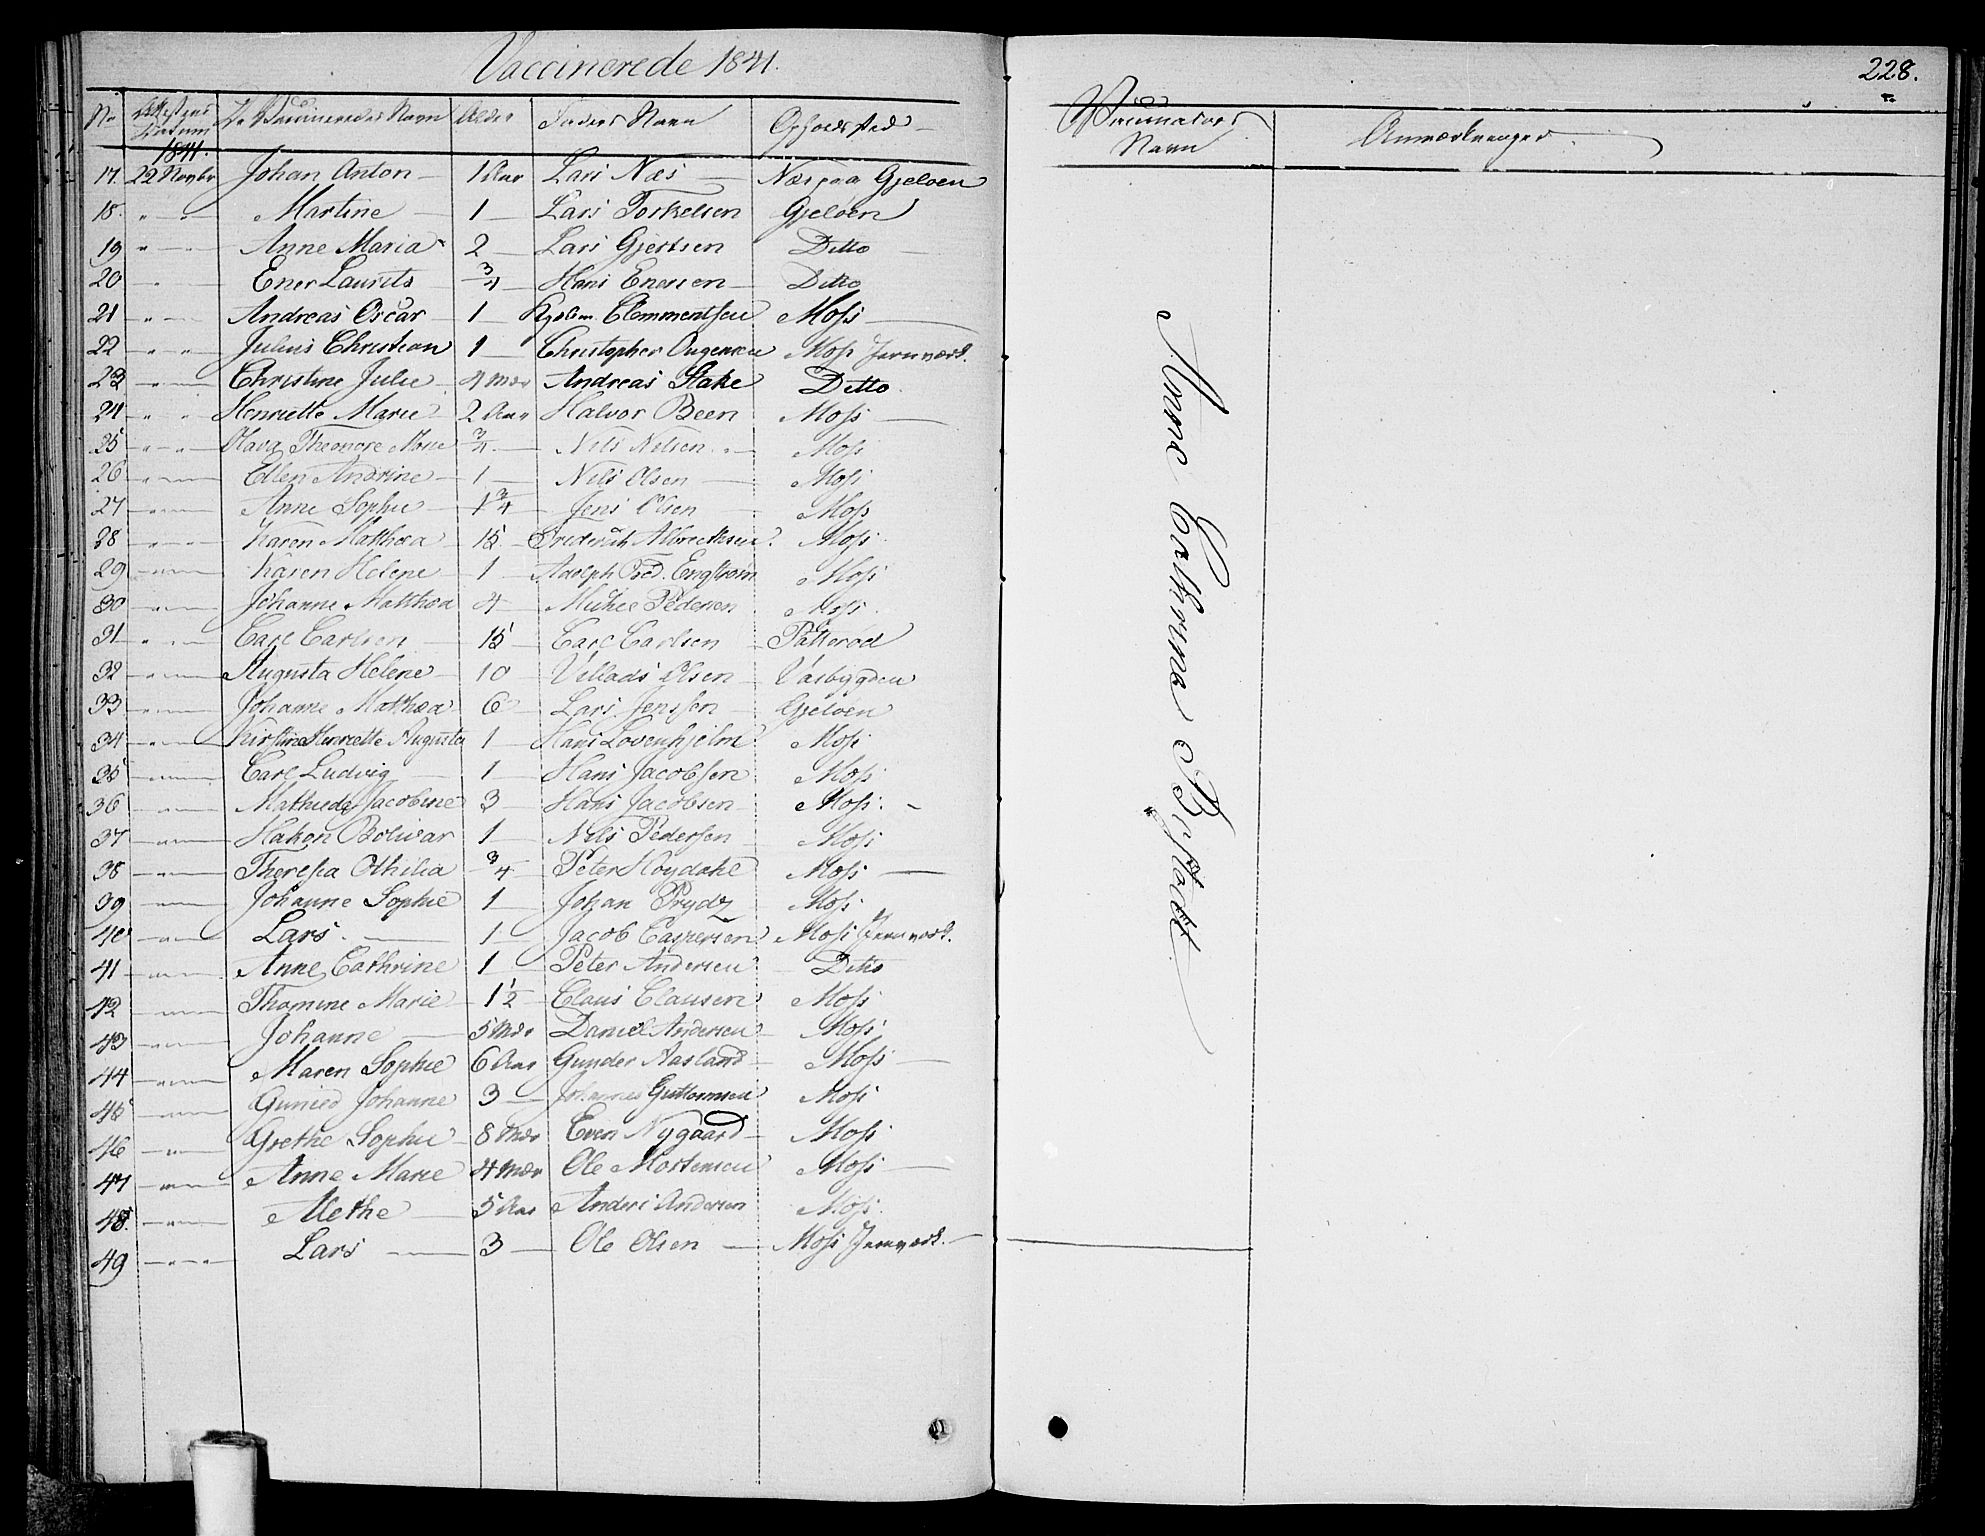 Vaccinerede 1841.
228.
No Attestens Datum De Vaccineredes Navn Alder Faders Navn Opholdssted Vaccinateurs Navn Anmærkninger
1841.
17. 22 Novbr Johan Anton 1 Aar Lars Næs Næs paa Gjeløen
18. " " Martine 1 Lars Torkelsen Gjeløen
19 " " Anne Maria 2 Lars Gjertsen Ditto
20 " Ener Laurits 3/4 Hans Enersen Ditto
21 " " Andreas Oscar 1 Clemmentsen Moss
22 " " Julius Christian 1 Christopher Moss Jernværk.
23 " Christine Julie 4 Mdr Andreas Stake Ditto
24 " " Henriette Marie 2 Aar Halvor Been Moss
25 " " Theonore Marie 3/4 Nils Nilsen Moss
26 " Ellen Andrine 1 Nils Olsen Moss
27 " Anne Sophie 1 3/4 Jens Olsen Moss
28 " " Karen Mathea 15 Frederich Albrechtsen Moss
29 " Karen Helene 1 Adolph Fred. Engstrøm Moss
30 " Johanne Matthea 4 Michel Pedersen Moss
31 " " Carl Carlsen 15 Carl Carlsen Patterød
32 " Augusta Helene 10 Villads Olsen Vaibygden
33 " Johanne Mathea 6 Lars Jenssen Gjeløen
34 " Kirstine Henriette Augusta 1 Hans Lovenhjelm Moss
35 " Carl Ludvig 1 Hans Jacobsen Moss
36 " Mathilde Jacobine 3 Hans Jacobsen Moss.
37 " Hakon Bolivar 1 Nils Pedersen Moss
38 " Theresia Othilia 3/4 Peter Høydahl Moss
39 " Johanne Sophie 1 Johan Prydz Moss
40 " Lars. 1 Jacob Caspersen Moss Jernværk.
41 " Anne Cathrine 1 Peter Andersen Ditto
42 " Thomine Marie 1 1/2 Claus Clausen Moss
43 " Johanne 5 Mdr Daniel Andersen Moss
44 " Maren Sophie 6 Aar Gunder Aasland Moss
45 " Gunied Johanne 3 Johannes Guttormsen Moss
46 " Grethe Sophie 8 Mdr Even Nygaard Moss
47 " Anne Marie 4 Mdr Ole Mortensen Moss
48 " Methe 5 Aar Anders Andersen Moss
49 " " Lars 3 Ole Olsen Moss Jernværk.
Anne Cathrine Bestadt